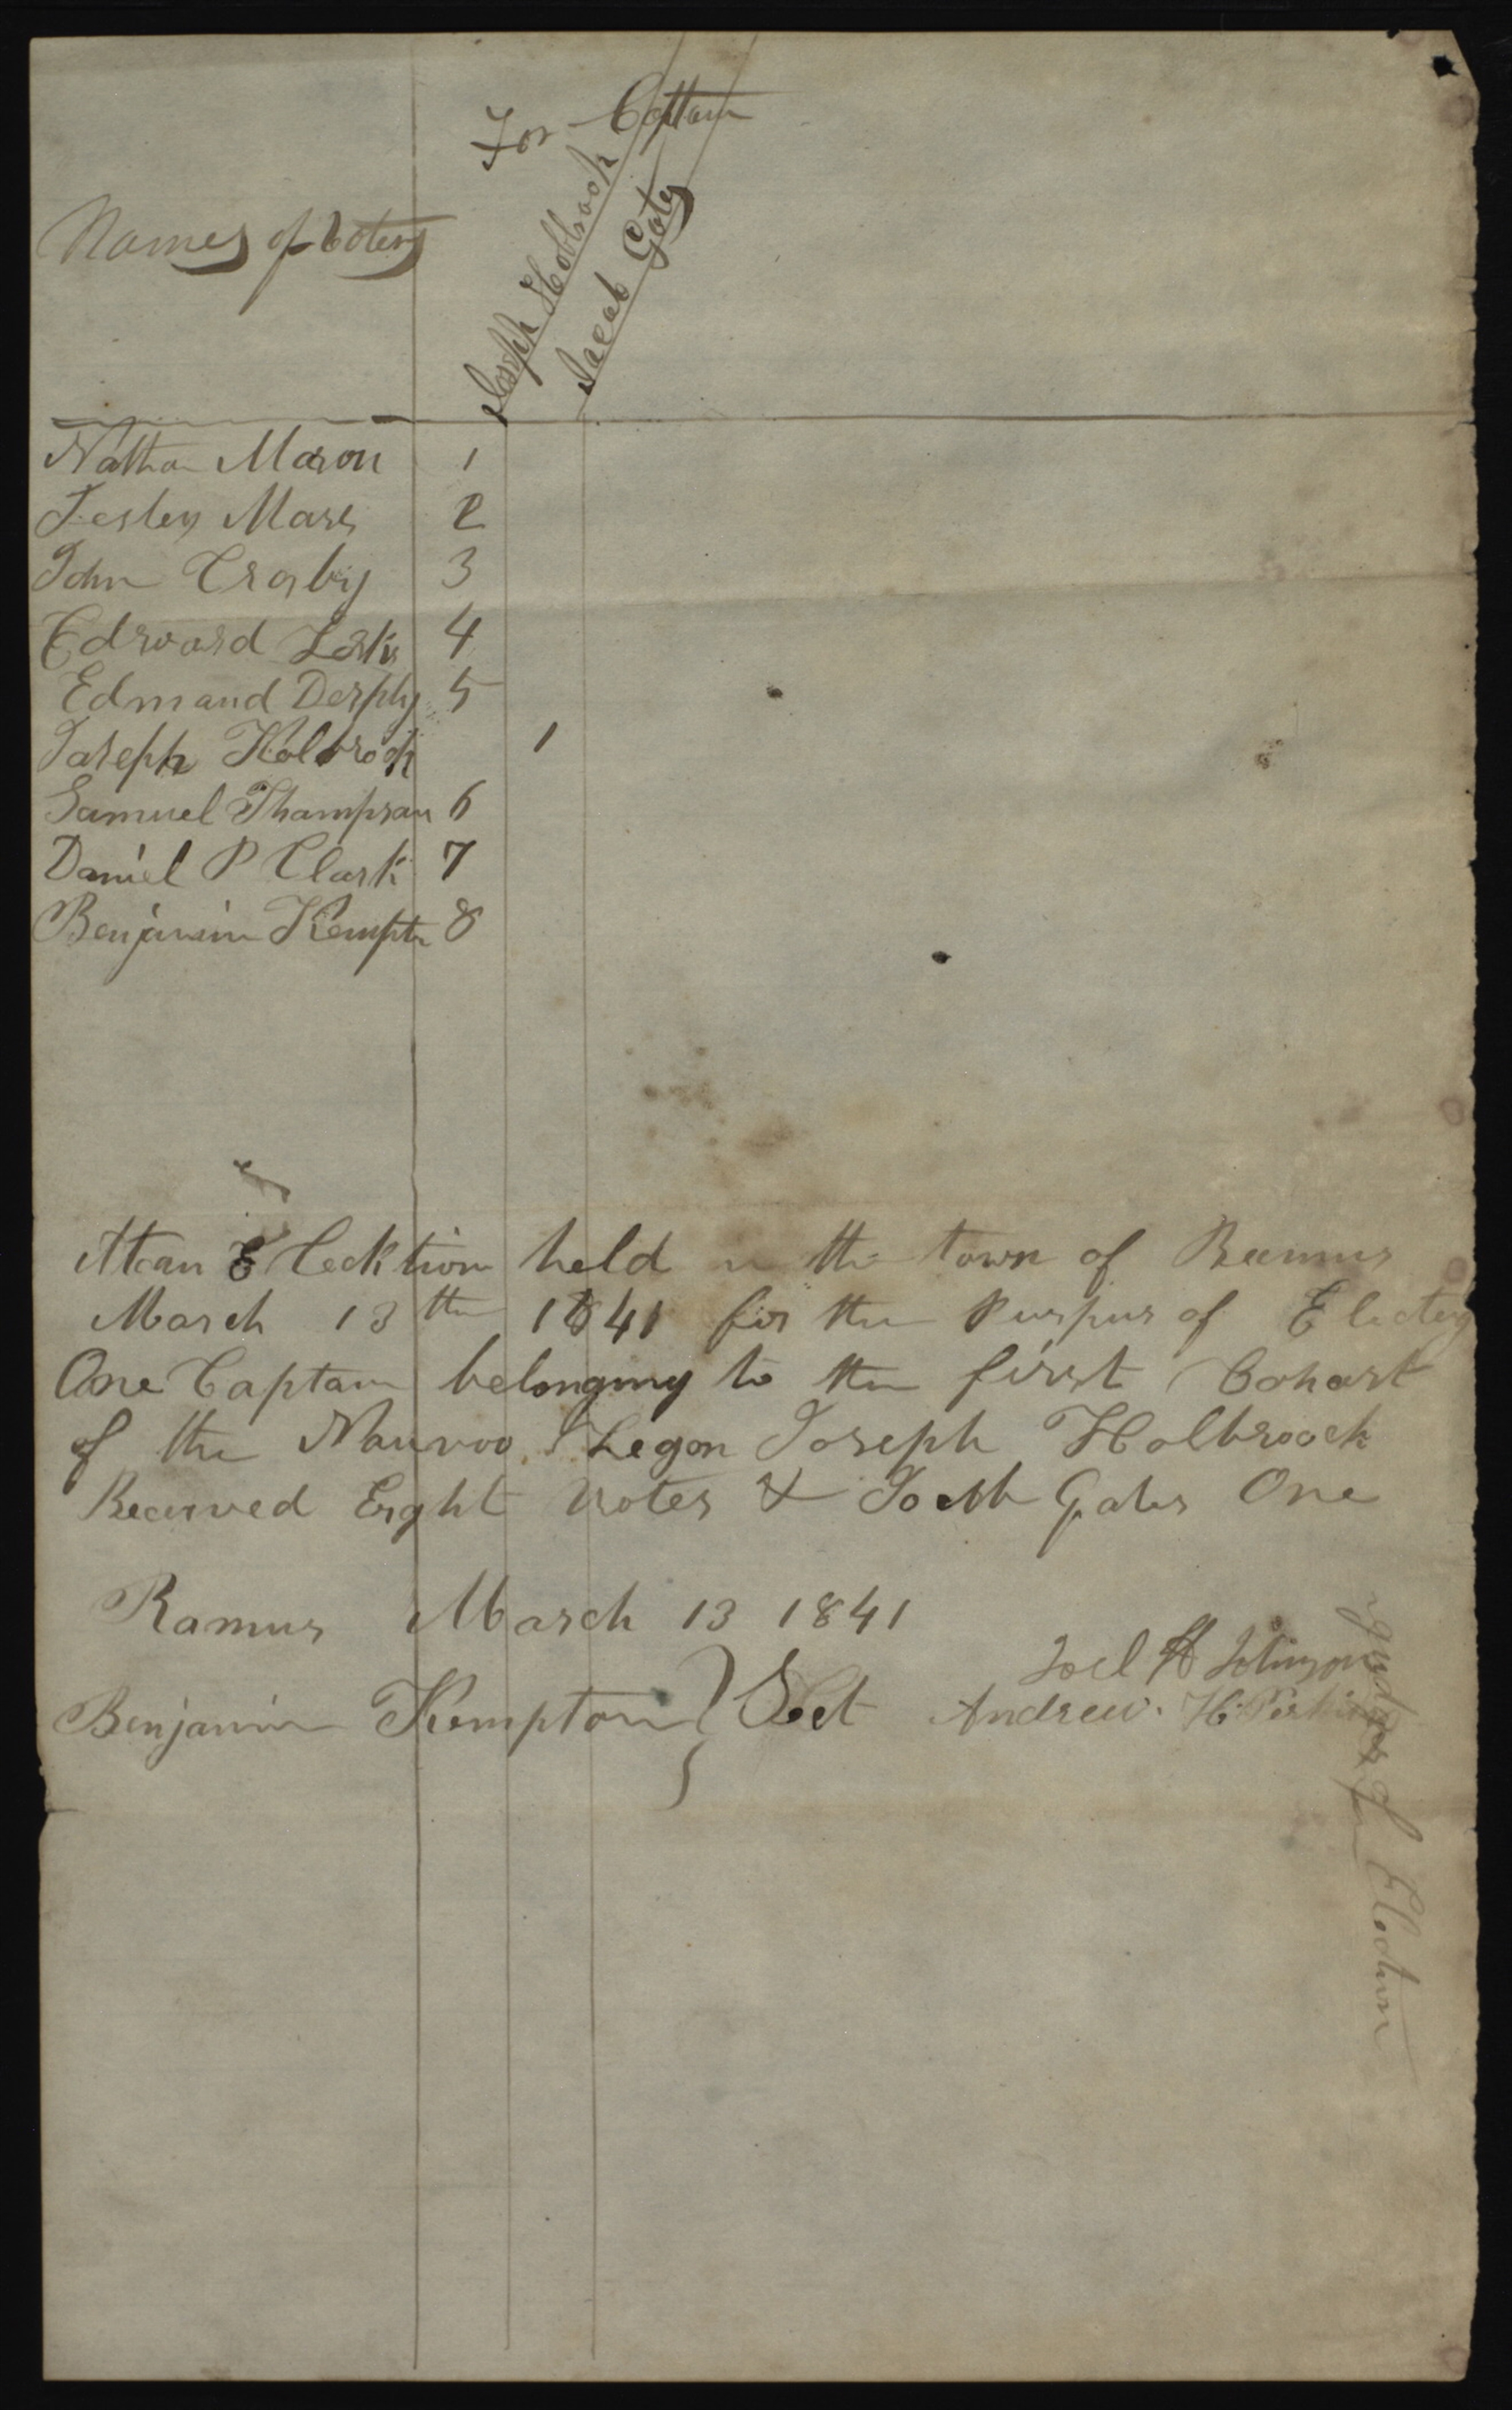 For Captain
Names of Voters
Joseph Holbrook
Jacob Gates
Nathan Mason 1
2
John Crosby 3
Edward 4
Edmand 5
Joseph Holbrook 1
Samuel Thampsan 6
Daniel P Clark 7
Benjamin Kempton 8
At an Élecktion held in the town of Ramus
March 13th 1841 for the Purpus of Electeg
One Captain belonging to the first Cohart
of the Nauvoo Legon Joseph Holbroock
Received Eight Votes & Gates One
Ramus March 13 1841
Joel H Johnson
Benjamin Kempton } Clet Andrew. H. Perkins
Judges for Election